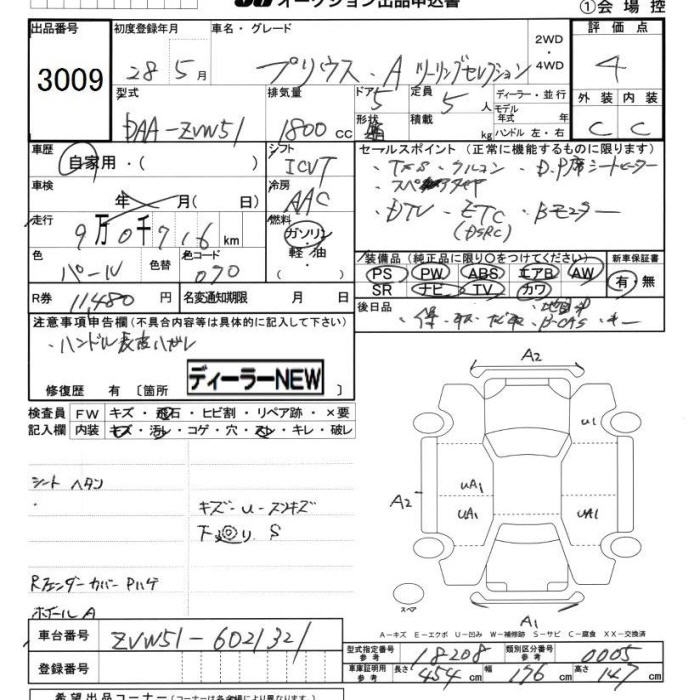 オークション出品申込書
①会場控
出品番号 初度登録年月 車名・グレード 評価点
3009 28 5月 プリウス・A ツーリングセレクション 2WD・4WD 4
型式 排気量 ドア 定員 ディーラー・並行 外装 内装
DAA-ZVW51 1800cc 5 5人 モデル年式 年 C C
形状 積載 kg ハンドル 左・右
車歴 シフト セールスポイント(正常に機能するものに限ります)
自家用・( ) ICVT ・TSS ・クルコン ・D.P席シートヒーター
車検 年 月( 日) 冷房 AAC
・DTV ・ETC(DSRC) ・Bモニター
走行 9万0千716km 燃料 ガソリン・軽油
色 パール 色替 色コード 070
装備品(純正品に限り○をつけてください) 新車保証書
PS PW ABS エアB AW 有・無
SR ナビ TV カワ
R券 11,480円 名変通知期限 月 日
後日品
注意事項申告欄(不具合内容等は具体的に記入して下さい)
・ハンドル表皮ハガレ
修復歴 有〔箇所 ディーラーNEW
検査員記入欄 FW キズ・飛石・ヒビ割・リペア跡・×要
内装 キズ・汚レ・コゲ・穴・スレ・キレ・破レ
シート ヘタリ
キズ・U・スリキズ
下廻り S
Rフェンダーカバー Pハゲ
ホイールA
A2
U1
A2
UA1
UA1 UA1
スペア
A1
A-キズ E-エクボ U-凹み W-補修跡 S-サビ C-腐食 XX-交換済
車台番号 ZVW51-6021321
型式指定番号 参考 18208 類別区分番号 参考 0005
登録番号
車庫証明用 参考 長さ 454cm 幅 176cm 高さ 147cm
希望出品コーナー(コーナーは各会場により異なります)